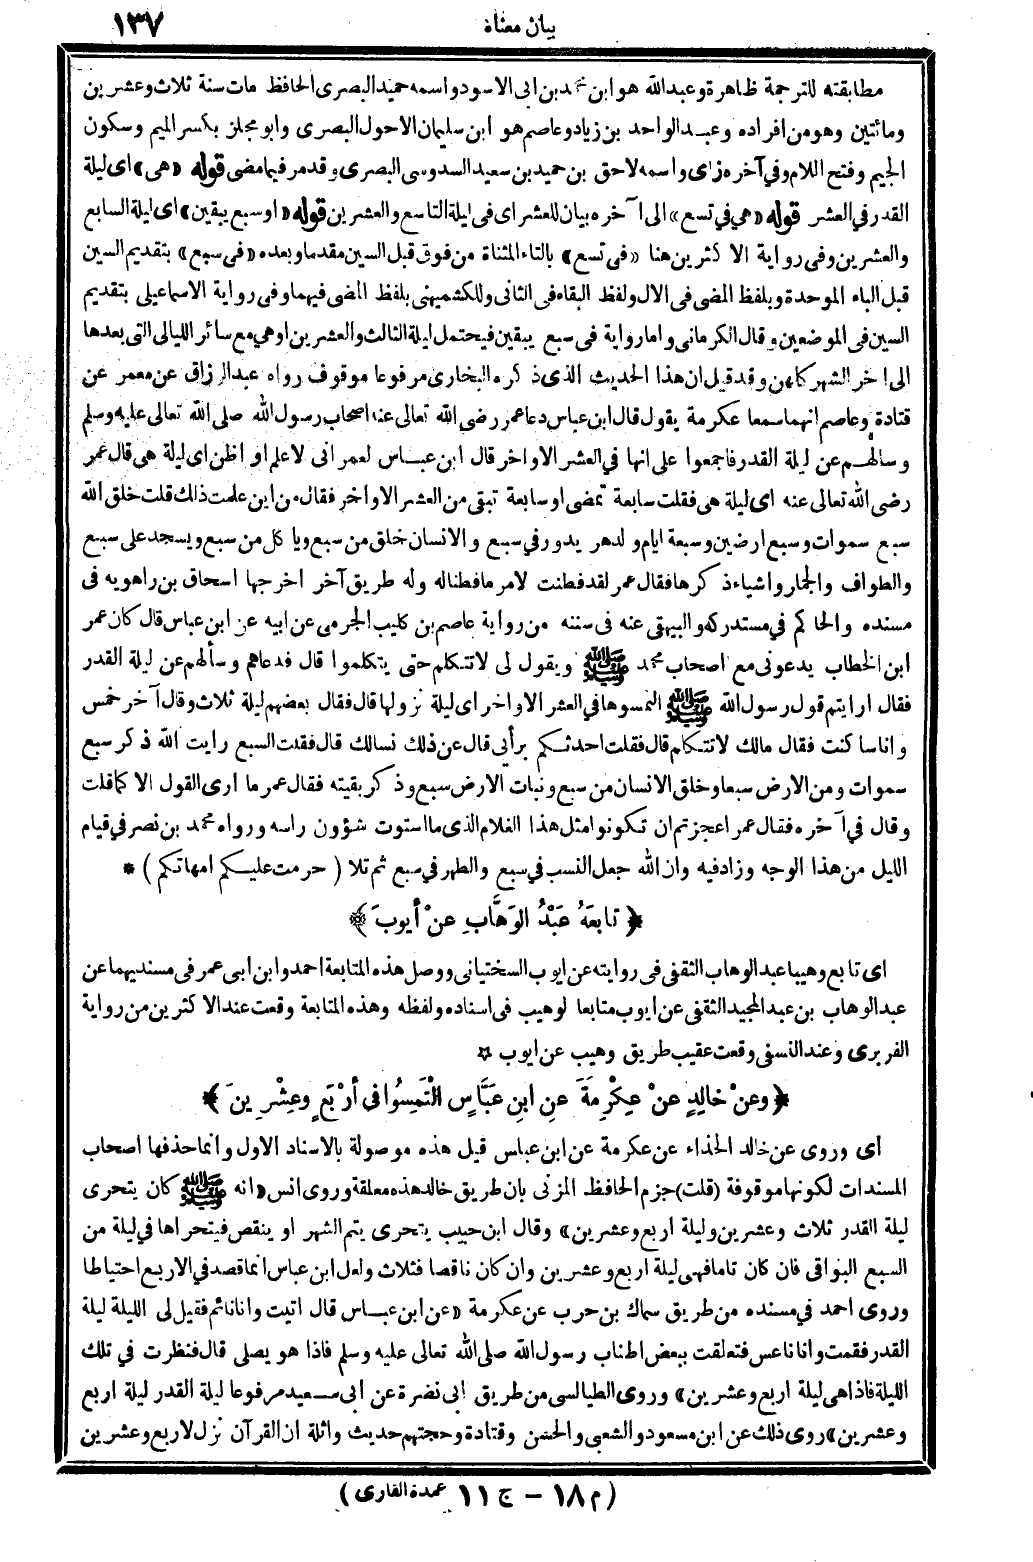 بيان معناه ١٣٧
مطابقته للترجمة ظاهرة وعبدالله هو ابن محمد بن ابى الاسود واسمه حميد البصرى الحافظ مات سنة ثلاث وعشرين
ومائتين وهو من افراده وعبد الواحد بن زياد وعاصم هو ابن سليمان الاحول البصرى وابو مجلز بكسر الميم وسكون
الجيم وفتح اللام وفي آخره زاى واسمه لاحق بن حميد بن سعيد السدوسى البصرى وقد مر فيما مضى قوله «هى» اى ليلة
القدر فى العشر قوله «هى فى تسع» الى آخره بيان للعشر اى فى ليلة التاسع والعشرين قوله «او سبع يبقين» اى ليلة السابع
والعشرين وفى رواية الاكثرين هنا «فى تسع» بالتاء المثناة من فوق قبل السين مقدما وبعده «فى سبع» بتقديم السين
قبل الباء الموحدة وبلفظ المضى فى الال ولفظ البقاء فى الثانى وللكشميهنى بلفظ المضى فيهما وفى رواية الاسماعيلى بتقديم
السين فى الموضعين وقال الكرمانى واما رواية فى سبع يبقين فيحتمل ليلة الثالث والعشرين او هي مع سائر الليالى التى بعدها
الى اخر الشهر كلهن وقد قيل ان هذا الحديث الذى ذكره البخارى مرفوعا موقوف رواه عبد الرزاق عن معمر عن
قتادة وعاصم انهما سمعا عكرمة يقول قال ابن عباس دعا عمر رضى الله تعالى عنه اصحاب رسول الله صلى الله تعالى عليه وسلم
وسالهم عن ليلة القدر فاجمعوا على انها في العشر الاواخر قال ابن عباس لعمر انى لاعلم او اظن اى ليلة هى قال عمر
رضى الله تعالى عنه اى ليلة هى فقلت سابعة تمضى او سابعة تبقى من العشر الاواخر فقال من اين علمت ذالك قلت خلق الله
سبع سموات وسبع ارضين وسبعة ايام ولدهر يدور في سبع والانسان خلق من سبع وياكل من سبع ويسجد على سبع
والطواف والجمار واشياء ذكرها فقال عمر لقد فطنت لامر ما فطناله وله طريق آخر اخرجها اسحاق بن راهويه فى
مسنده والحاكم في مستدركه والبيهقى عنه فى سننه من رواية عاصم بن كليب الجرمى عن ابيه عن ابن عباس قال كان عمر
ابن الخطاب يدعونى مع اصحاب محمد ﷺ ويقول لى لا تتكلم حتى يتكلموا قال فدعاهم وسألهم عن ليلة القدر
فقال ارايتم قول رسول الله ﷺ التمسوها في العشر الاواخر اى ليلة نزولها قال فقال بعضهم ليلة ثلاث وقال آخر خمس
وانا ساكت فقال مالك لا تتكلم قال فقلت احدثكم برأيى قال عن ذلك نسالك قال فقلت السبع رايت الله ذكر سبع
سموات ومن الارض سبعا وخلق الانسان من سبع ونبات الارض سبع وذكر بقيته فقال عمر ما ارى القول الا كما قلت
وقال في آخره فقال عمر اعجزتم ان تكونوا مثل هذا الغلام الذى ما استوت شؤون راسه ورواه محمد بن نصر في قيام
الليل من هذا الوجه وزاد فيه وان الله جعل النسب في سبع والطهر في سبع ثم تلا ( حرمت عليكم امهاتكم ) *
﴿ تابعَهُ عَبْدُ الوَهَّابِ عنْ أيوبَ ﴾
اى تابع وهيبا عبد الوهاب الثقفى فى روايته عن ايوب السختيانى ووصل هذه المتابعة احمد وابن ابى عمر فى مسنديهما عن
عبد الوهاب بن عبد المجيد الثقفى عن ايوب متابعا لوهيب فى اسناده ولفظه وهذه المتابعة وقعت عند الاكثرين من رواية
الفربرى وعند النسفى وقعت عقيب طريق وهيب عن ايوب ☆
﴿ وعنْ خالِدٍ عنْ عِكْرِمةَ عنِ ابنِ عبَّاسٍ الْتَمِسُوا فى أرْبَعٍ وعِشْرِينَ ﴾
اى وروى عن خالد الحذاء عن عكرمة عن ابن عباس قيل هذه موصولة بالاسناد الاول وانما حذفها اصحاب
المسندات لكونها موقوفة (قلت) جزم الحافظ المزنى بان طريق خالد هذه معلقة وروى انس «انه ﷺ كان يتحرى
ليلة القدر ثلاث وعشرين وليلة اربع وعشرين» وقال ابن حبيب يتحرى يتم الشهر او ينقص فيتحراها في ليلة من
السبع البواقى فان كان تاما فهى ليلة اربع وعشرين وان كان ناقصا فثلاث ولعل ابن عباس انما قصد في الاربع احتياطا
وروى احمد في مسنده من طريق سماك بن حرب عن عكرمة «عن ابن عباس قال اتيت وانا نائم فقيل لى الليلة ليلة
القدر فقمت وانا ناعس فتعلقت ببعض اطناب رسول الله صلى الله تعالى عليه وسلم فاذا هو يصلى قال فنظرت في تلك
الليلة فاذا هى ليلة اربع وعشرين» وروى الطيالسى من طريق ابى نضرة عن ابى سعيد مرفوعا ليلة القدر ليلة اربع
وعشرين» روى ذلك عن ابن مسعود والشعبى والحسن وقتادة وحجتهم حديث واثلة ان القرآن نزل لاربع وعشرين
(م ١٨ – ج ١١ عمدة القارى)